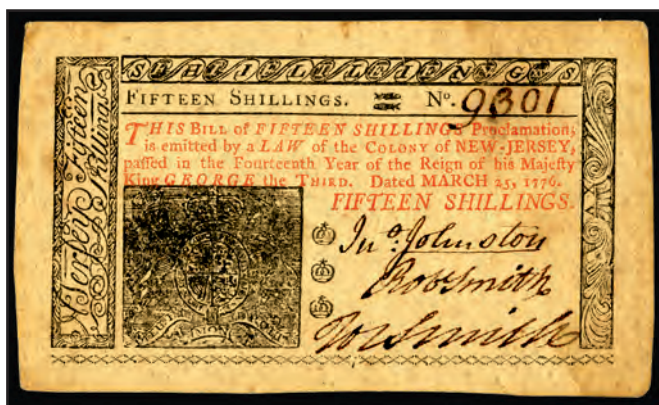 N. Jerſey Fifteen Shillings
FIFTEEN SHILLINGS. No. 9301
THIS BILL of FIFTEEN SHILLINGS Proclamation,
is emitted by a LAW of the COLONY of NEW-JERSEY,
paſſed in the Fourteenth Year of the Reign of his Majeſty
King GEORGE the THIRD. Dated MARCH 25, 1776.
FIFTEEN SHILLINGS.
Jno. Johnston
Rob Smith
Jos Smith